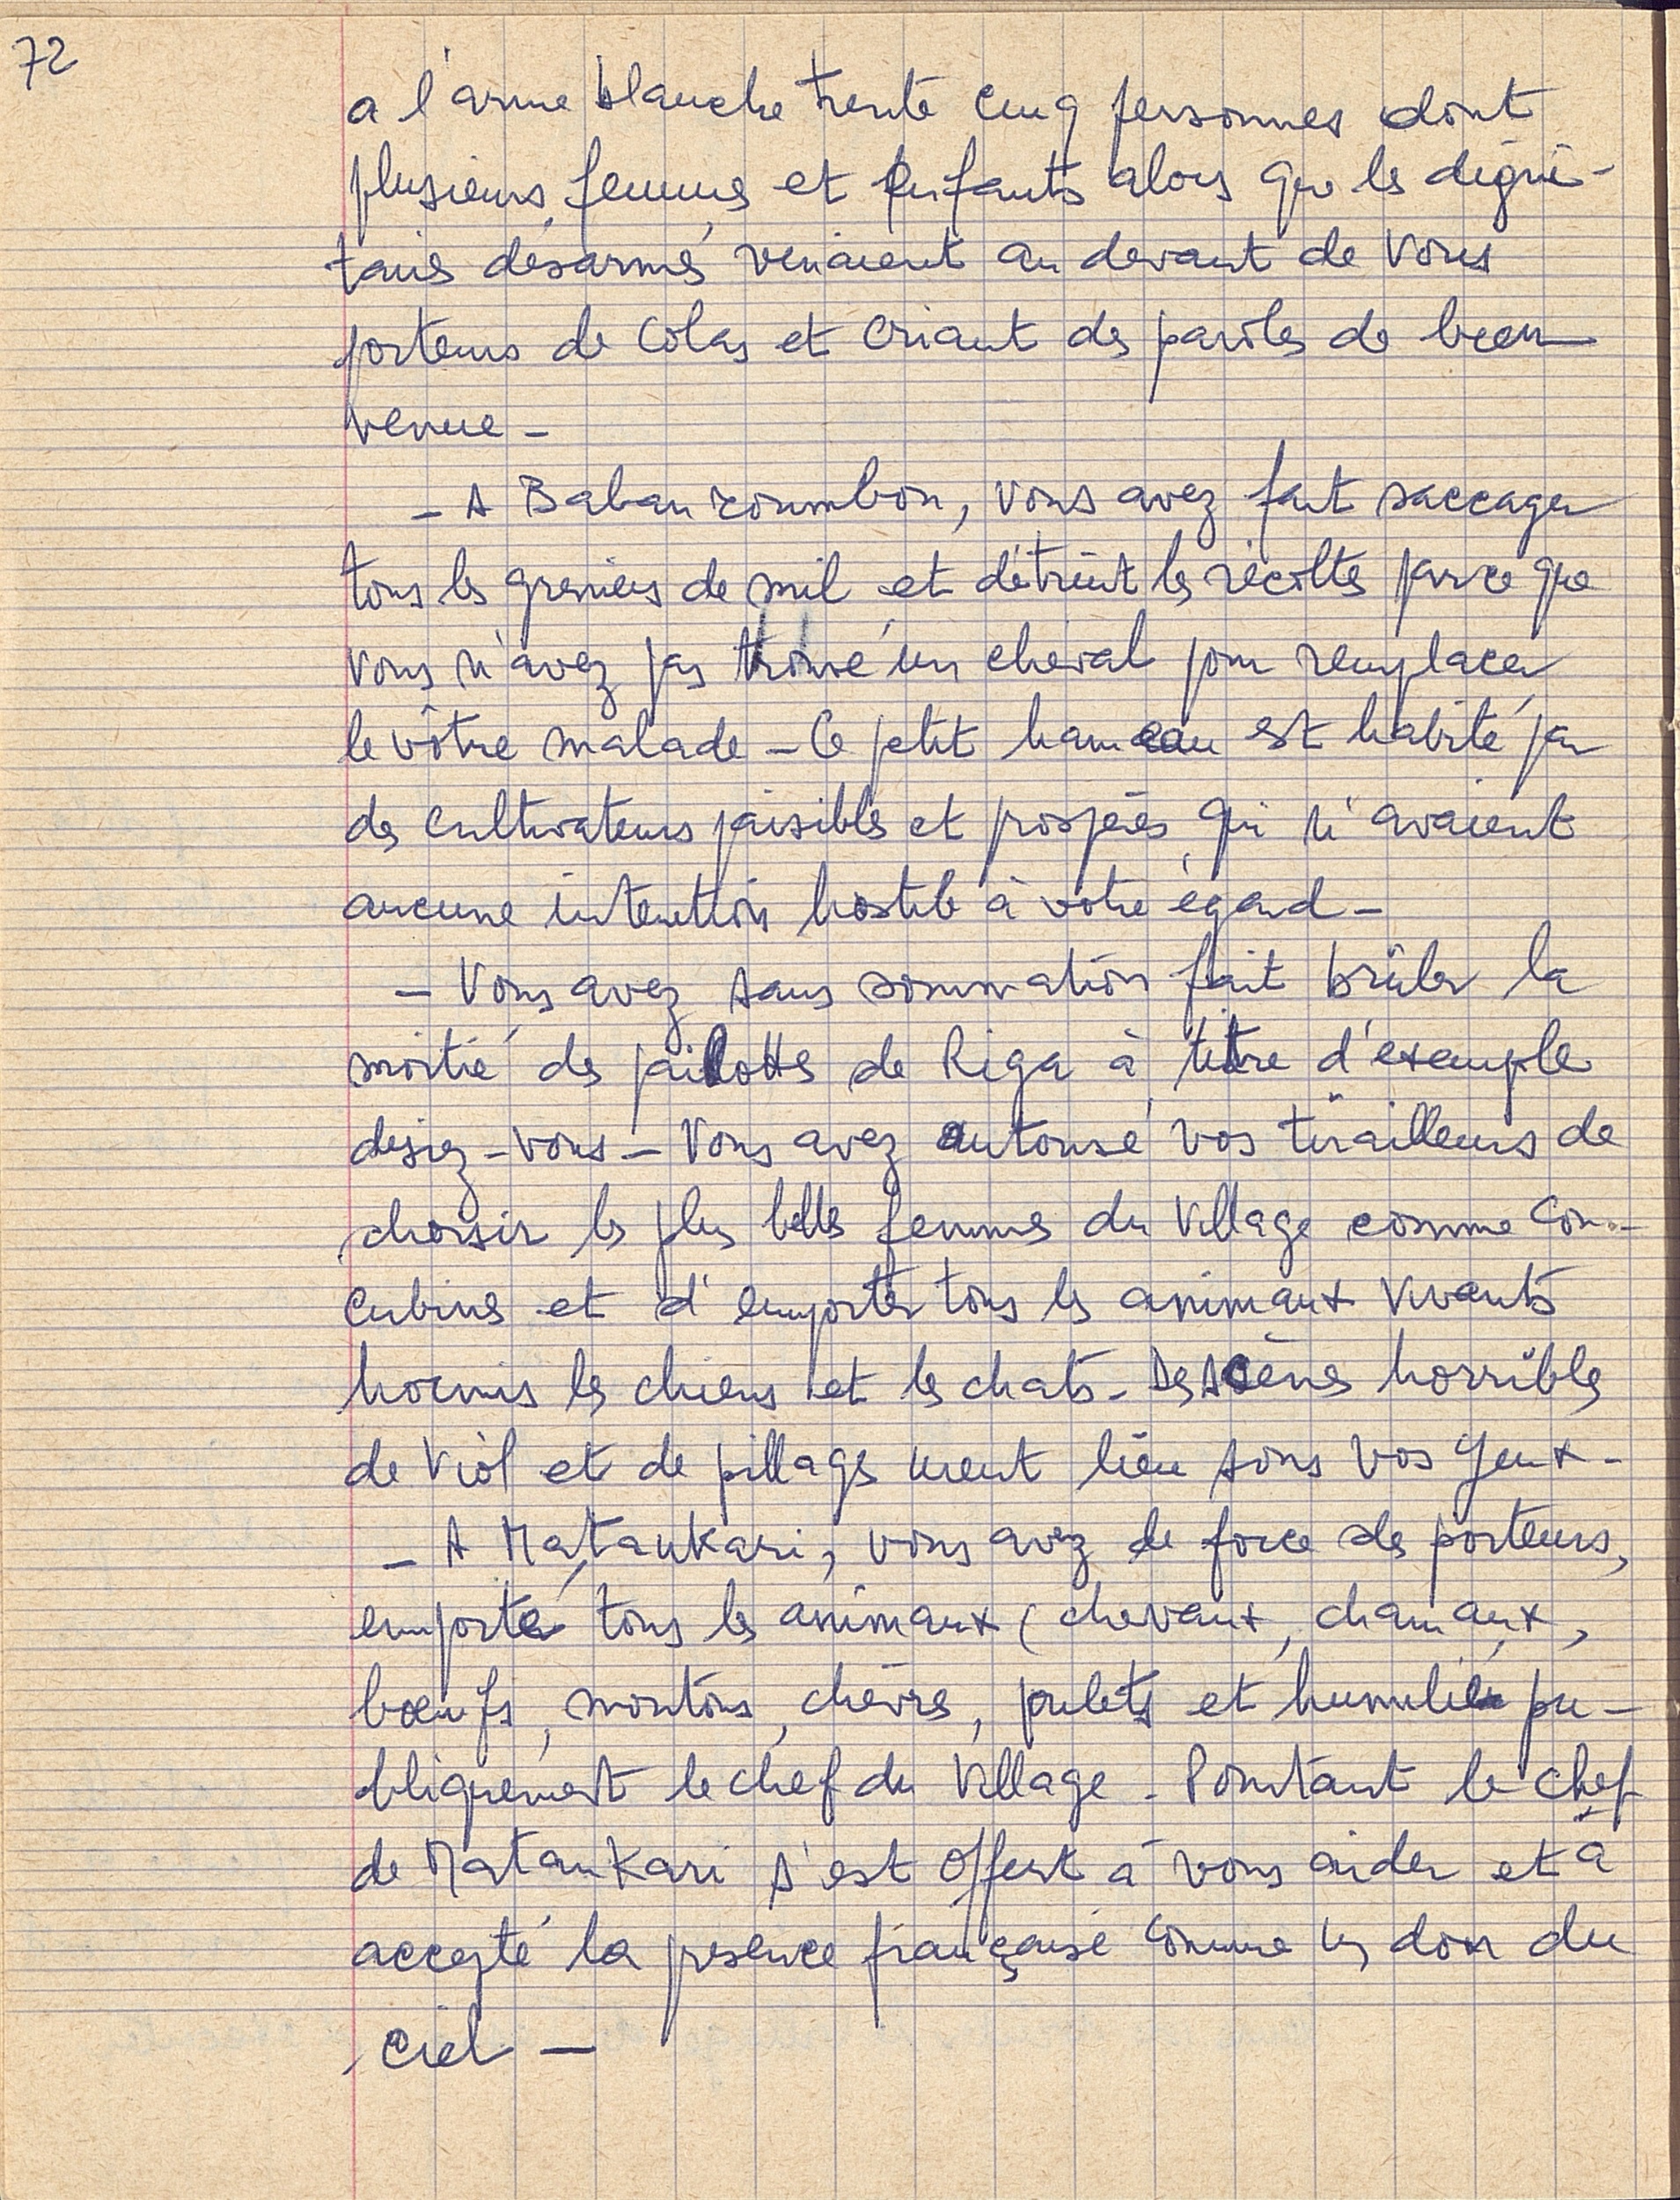 72
a l'arme blanche trente cinq personnes dont
plusieurs femmes et enfants alors que les digni-
taires désarmés venaient au devant de vous
porteurs de colas et criant des paroles de bien
venue -
- A Baban roumbou, vous avez fait saccager
tous les greniers de mil et détruit les récoltes parce que
vous n'avez pas trouvé un cheval pour remplacer
le vôtre malade - Ce petit hameau est habité par
des cultivateurs paisibles et prospères qui n'avaient
aucune intention hostile à votre égard -
- Vous avez sans sommation fait brûler la
moitié des paillottes de Riga à titre d'exemple
disiez-vous - Vous avez autorisé vos tirailleurs de
choisir les plus belles femmes du village comme con-
cubines et d'emporter tous les animaux vivants
hormis les chiens et les chats - Des scènes horribles
de viol et de pillages eurent lieu sous vos yeux -
- A Matankari, vous avez de force des porteurs,
emporté tous les animaux (chevaux, chamaux,
boeufs, moutons, chèvres, pulets et humilié pu-
bliquement le chef du village - Pourtant le chef
de Matankari s'est offert à vous aider et à
accepté la présence française comme un don du
ciel -